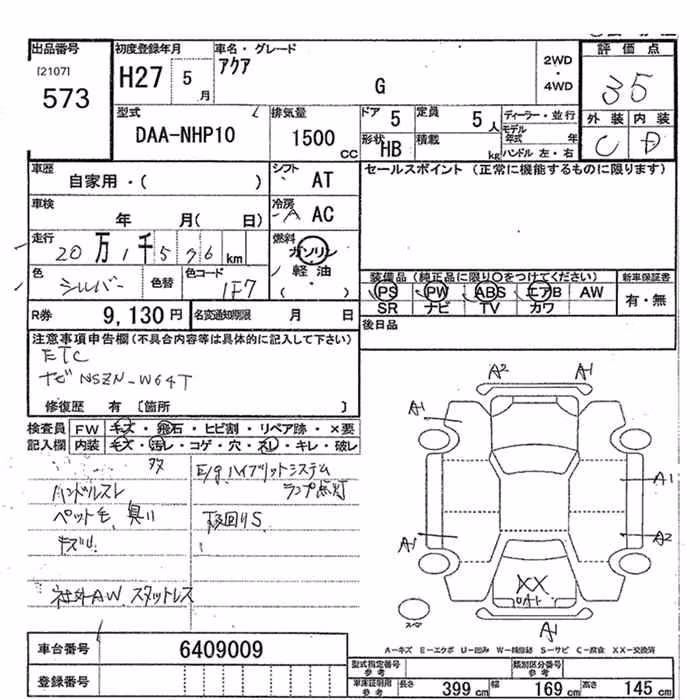 出品番号
[2107]
573
初度登録年月
H27 5 月
車名・グレード
アクア
G
2WD
・
4WD
評価点
35
外装 内装
C D
型式
DAA-NHP10
排気量
1500 CC
ドア 5
定員 5 人
形状 HB
積載 kg
ディーラー・並行
モデル年式 年
ハンドル 左・右
車歴
自家用・( )
シフト AT
セールスポイント (正常に機能するものに限ります)
車検
年 月( 日)
冷房 A AC
走行
20 万 1 千 5 76 km
燃料
ガソリン
軽油
( )
色
シルバー
色替
色コード
1F7
装備品 (純正品に限り○をつけてください)
新車保証書
PS PW ABS エアB AW
有・無
SR ナビ TV カワ
R券 9,130 円
名変通知期限 月 日
後日品
注意事項申告欄 (不具合内容等は具体的に記入して下さい)
ETC
ナビ NSZN-W64T
修復歴 有 [箇所 ]
検査員 FW キズ・飛石・ヒビ割・リペア跡・×要
記入欄 内装 キズ・汚レ・コゲ・穴・スレ・キレ・破レ
E/g ハイブリットシステム
ランプ点灯
ハンドルスレ
ペット毛、臭い
下回りS
社外AW スタットレス
A2
A1
A1
A1
A1
A2
XX
A1
スペア
A－キズ E－エクボ U－凹み W－補修跡 S－サビ C－腐食 XX－交換済
車台番号 6409009
登録番号
型式指定番号 参考
類別区分番号 参考
車庫証明用 参考 長さ 399 cm 幅 169 cm 高さ 145 cm